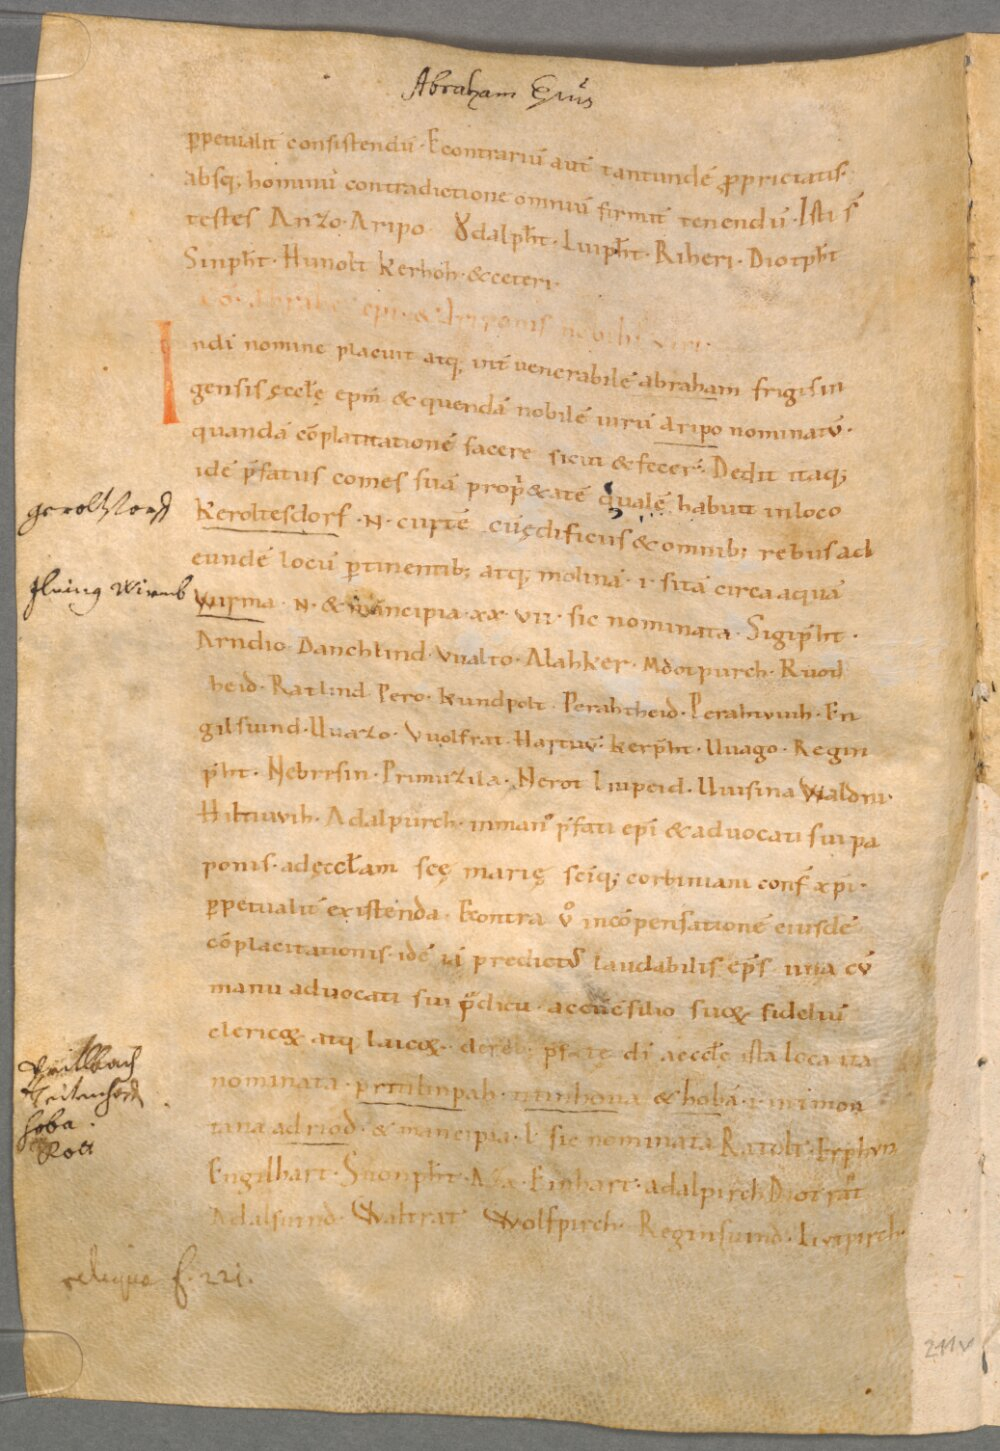 Abraham Ep̃us
ꝑpetualit̃ consistendũ · Econtrariũ aut̃ tantundẽ ꝓprietatis
absq; hominũ contradictione omniũ firmit̃ tenendũ · Isti s̃
testes Anzo · Aripo · Ɣdalpħt · Liupħt · Riheri · Diotpħt
Sinpħt · Hunolt Kerhoh · &ceteri ·
Abrahã epi · & Ariponis nobilis viri ·
Indi nomine placuit atq; int̃ venerabilẽ abraham frigisin
gensis ęccłę epm̃ & quendã nobilẽ uirũ aripo nominatũ ·
quandã cõplacitationẽ facere sicut & fecer̃ · Dedit itaq;
idẽ p̃fatus comes suã propⁱ&atẽ qualẽ habuit inloco
Keroltesdorf · N · curtẽ cũędificiis & omnib; rebus ad
eundẽ locũ ꝑtinentib; atq; molinã · i · sitã circa aquã
Wirma · N · & mancipia · xx · vii · sic nominata · Sigip̃ht ·
Arndio Danchlind · Vualto · Alahker · Mdotpurch · Ruod
heid · Ratlind Pero · Kundpolt · Perahtheid · Perahtvvih · En
gilsuind · Uuazo · Vuolfrat · Hartuũ · kerp̃ht · Uuago · Regin
p̃ht · Nebresin · Primizila · Nerot Liupeid · Uuisina Waldni ·
Hiltiuvih · Adalpurch · inmanũ p̃fati epi & aduocati sui pa
ponis · adęccłam scę marię sciq; corbiniani conf̃ xp̃i ·
ꝑpetualit̃ existenda · Econtra ṽ incõpensationẽ eiusdẽ
cõplacitationis · idẽ iã predictꝰ laudabilis ep̃s una cũ
manu aduocati sui p̃dicti · accũcsilio suoꝝ fideliũ
clericoꝝ atq; laicoꝝ · dedit p̃fatę di aecclę ista loca ita
nominata · pritilinpah · &hobã · i · inimon
tana adriod · & mancipia · l · sic nominata Ratolt · Erphvn
Engilhart · Snonpħt · Aza · Einhart · adalpirch Diotrat
Adalsuind · Waltrat Wolfpirch · Reginsuind · Liutpirch
geroltstorff
fluing Wirmb
Prittlbach
hoba ·
Rott
reliqua f. 221.
211v